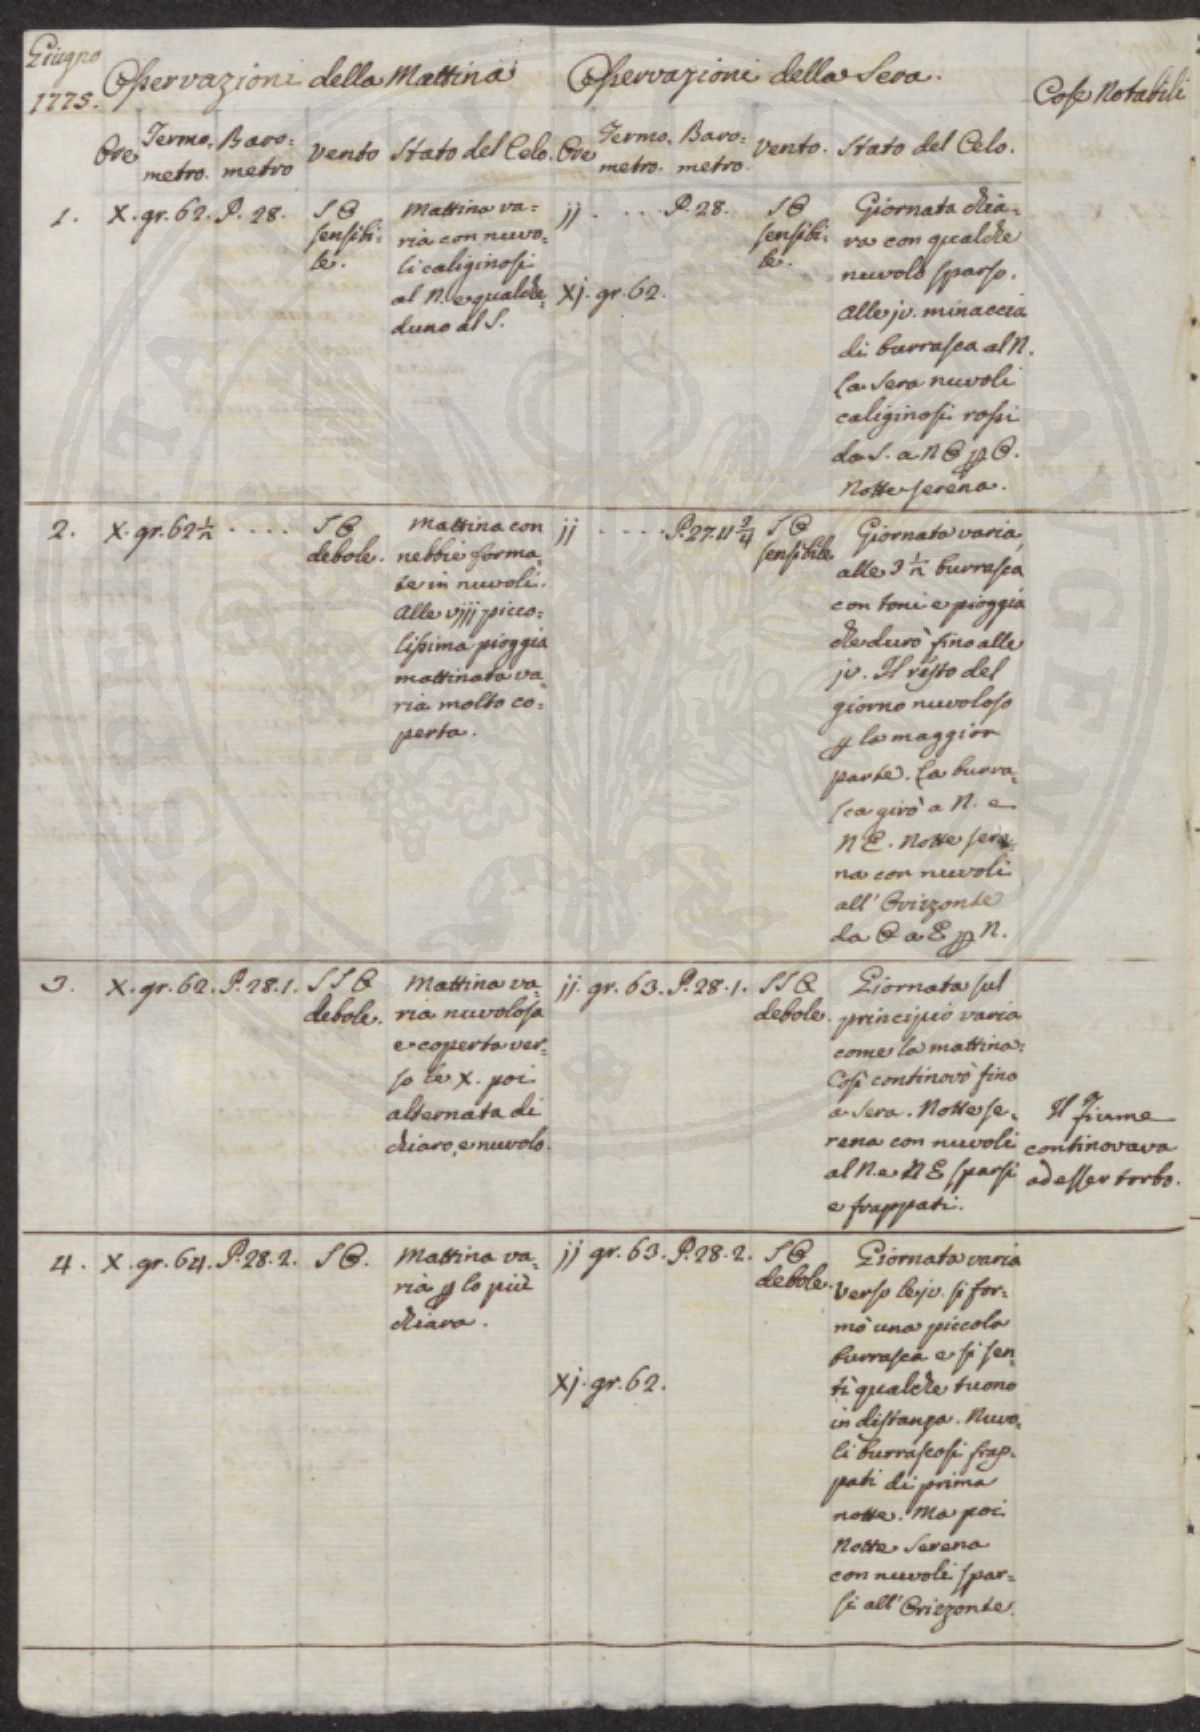 Giugno
1775.
Osservazioni della Mattina
Osservazioni della Sera.
Cose Notabili
Ore
Termo.
metro.
Baro=
metro
Vento
Stato del Celo.
Ore
Termo.
metro.
Baro=
metro.
Vento.
Stato del Celo.
1.
X. gr. 62.
P. 28.
S O
sensibi=
le.
Mattina va=
ria con nuvo=
li caliginosi
al N. e qualche=
duno al S.
jj . . . .
P. 28.
S O
sensibi=
le.
Xj. gr. 62.
Giornata chia=
ra con qualche
nuvolo sparso.
Alle jv. minaccia
di burrasca al N.
La sera nuvoli
caliginosi rossi
da S. a N O p O.
Notte serena.
2.
X. gr. 62 1/2 . . . .
S O
debole.
Mattina con
nebbie forma=
te in nuvoli.
Alle vjjj picco=
lissima pioggia
mattinata va=
ria molto co=
perta.
jj . . . .
P. 27. 11 3/4
S O
sensibile
Giornata varia,
alle 3 1/2 burrasca
con toni e pioggia
che durò fino alle
jv. Il resto del
giorno nuvoloso
p la maggior
parte. La burra=
sca girò a N. e
N E. Notte sere=
na con nuvoli
all' Orizzonte
da O a E p N.
3.
X. gr. 62.
P. 28. 1.
S S O
debole.
Mattina va=
ria nuvolosa
e coperta ver=
so le X. poi
alternata di
chiaro, e nuvolo.
jj. gr. 63.
P. 28. 1.
S S O
debole.
Giornata sul
principio varia
come la mattina:
Così continovò fino
a sera. Notte se=
rena con nuvoli
al N. e N E sparsi
e frappati.
Il Fiume
continovava
ad esser torbo.
4.
X. gr. 64.
P. 28. 2.
S O.
Mattina va=
ria p lo più
chiara.
jj gr. 63.
P. 28. 2.
S O
debole.
Xj. gr. 62.
Giornata varia
verso le jv. si for=
mò una piccola
burrasca e si sen=
tì qualche tuono
in distanza. Nuvo=
li burrascosi frap=
pati di prima
notte. Ma poi
Notte Serena
con nuvoli spar=
si all' Orizzonte.